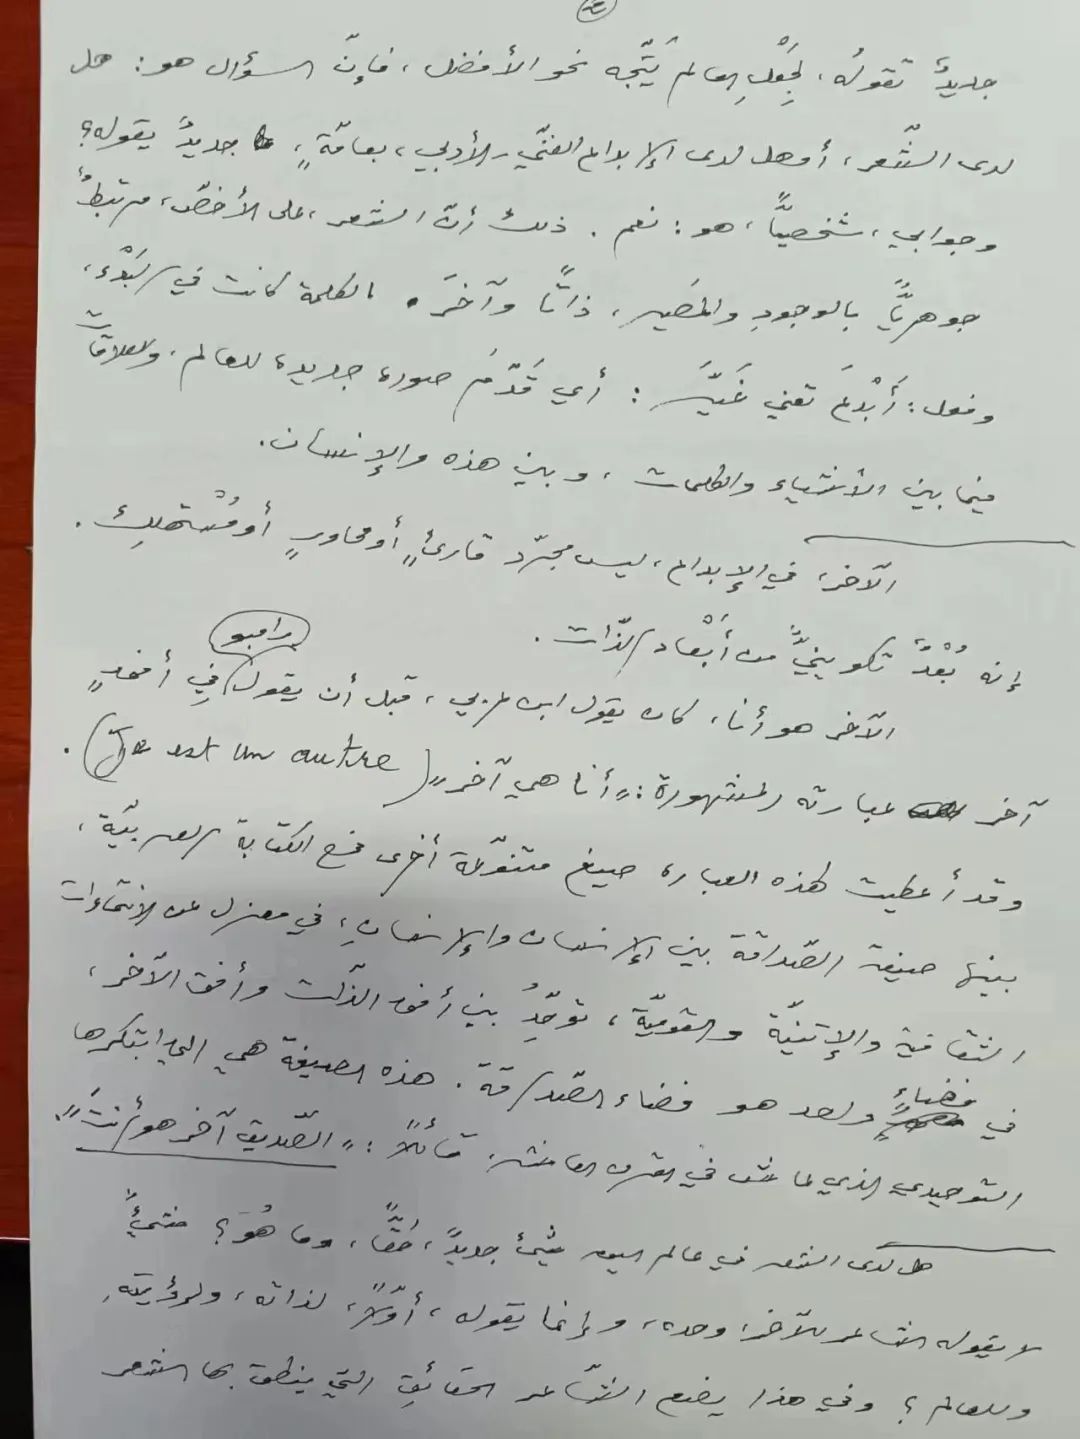 ٢
جديدٌ تقولُه، لِجَعْلِ العالم يَتّجه نحو الأفضل، فإنّ السؤال هو: هل
لدى الشّعر، أو هل لدى الإبداع الفنّي - الأدبي، بعامّةٍ، جديدٌ يقوله؟
وجوابي، شخصيّاً، هو: نعم. ذلك أنّ الشعر، على الأخصّ، مرتبطٌ
جوهريّاً بالوجودِ والمَصير، ذاتاً وآخَرَ. الكلمة كانت في البَدْء،
وفعل: أَبْدَعَ تعني غَيَّرَ: أي قَدَّمَ صورة جديدة للعالم، وللعلاقات
فيما بين الأشياء والكلمات، وبين هذه والإنسان.
الآخر، في الإبداع، ليس مجرّد قارئٍ أو محاورٍ أو مُسْتهلِك.
إنه بُعْدٌ تكوينيٌّ من أَبْعاد الذّات.
الآخر هو أنا، كان يقول ابن عربي، قبل أن يقول رامبو في أفقٍ
آخر عبارته المشهورة: «أنا هي آخر» (Je est un autre).
وقد أعطيت لهذه العبارة صيغ متنوّعة أخرى في الكتابة العربيّة،
بينها صيغة الصّداقة بين الإنسان والإنسانِ، في معزل عن الانتماءات
الثقافية والإتنيّة والقوميّة، توحِّدُ بين أفق الذّات وأفق الآخر،
في فضاءٍ واحد هو فضاء الصّداقة. هذه الصيغة هي التي ابتكرها
التوحيدي الذي عاش في القرن العاشر، قائلاً: «الصّديق آخر هو أنتَ».
هل لدى الشعر في عالم اليوم شيءٌ جديدٌ، حَقّاً، وما هُوَ؟ شيءٌ
لا يقوله الشاعر للآخر، وحده، وإنما يقوله، أوّلاً، لذاته، ولرؤيتِه
وللعالم؟ وفي هذا يضع الشّاعر الحقائقَ التي ينطق بها الشعر